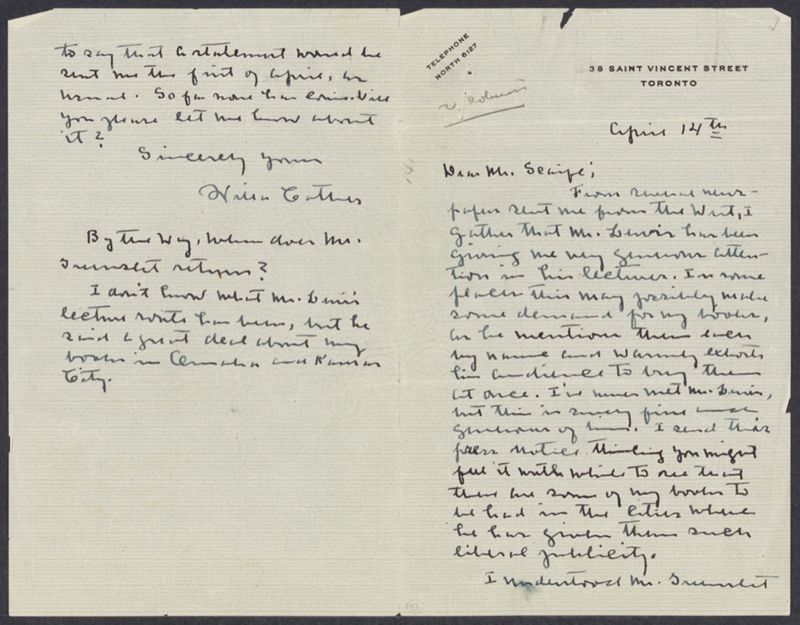 TELEPHONE
NORTH 6127
38 SAINT VINCENT STREET
TORONTO
April 14th
Dear Mr. Scaife;
From several news-
papers sent me from the West, I
gather that Mr. Lewis has been
giving me very generous atten-
tion in his lectures. In some
places this may possibly make
some demand for my books,
as he mentions them each
by name and warmly exhorts
his audience to buy them
at once. I've never met Mr. Lewis,
but this is surely fine and
generous of him. I send this
press notice thinking you might
feel it worth while to see that
there are some of my books to
be had in the cities where
he has given them such
liberal publicity.
I understood Mr. Greenslet
to say that a statement would be
sent me the first of April, as
usual. So far none has come. Will
you please let me know about
it?
Sincerely yours
Willa Cather
By the Way, when does Mr.
Greenslet return?
I don't know what Mr. Lewis'
lecture route has been, but he
said a great deal about my
books in Omaha and Kansas
City.